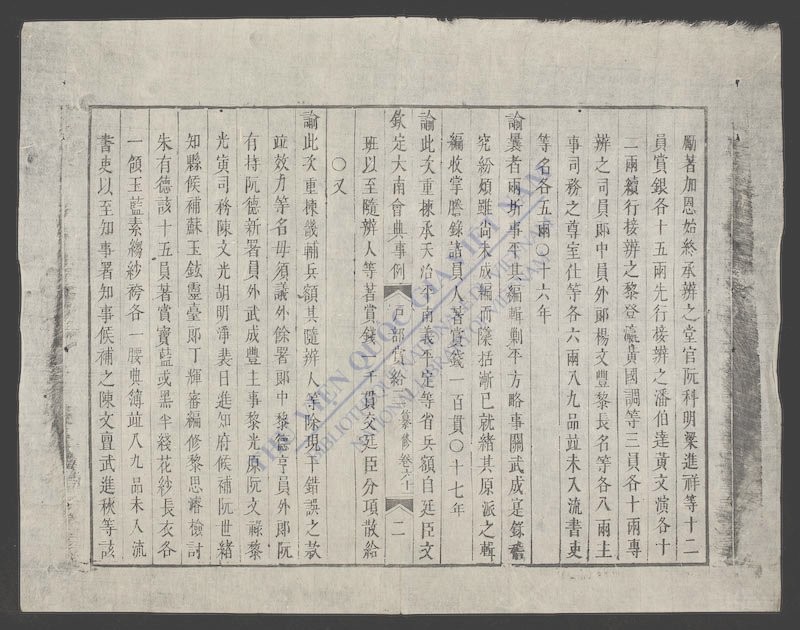 勵著加恩始終承辨之堂官阮科明梁進祥等十二
員賞銀各十五兩先行接辨之潘伯達黃文演各十
二兩續行接辨之黎登瀛黃國調等三員各十兩專
辨之司員郎中員外郎楊文豐黎長名等各八兩主
事司務之尊室仕等各六兩八九品並未入流書吏
等名各五兩〇十六年
諭曩者兩圻事平其編輯剿平方略事關武成寔錄
究紛煩雖尚未成編而隱括漸已就緒其原派之輯
編收掌謄錄諸員人著賞錢一百貫〇十七年
諭此次重揀承天治平南義平定等省兵額自廷臣文
欽定大南會典事例 戶部賞給 纂修 卷六十 二
班以至隨辨人等著賞錢一千貫交廷臣分項散給
〇又
諭此次重揀畿輔兵額其隨辨人等除現干錯誤之款
並效力等名毋須議外餘署郎中黎德亨員外郎阮
有持阮德新署員外武成豐主事黎光原阮文祿黎
光寅司務陳文光胡明淨裴日進知府候補阮世緒
知縣候補蘇玉鉉靈臺郎丁輝審編修黎思濬檢討
朱有德該十五員著賞寶藍或黑半綫花紗長衣各
一領玉藍素縐紗袴各一腰典簿並八九品未入流
書吏以至知事署知事候補之陳文亶武進秋等該
THƯ VIỆN QUỐC GIA VIỆT NAM
BIBLIOTHÈQUE NATIONALE DU VIETNAM
NATIONAL LIBRARY OF VIETNAM